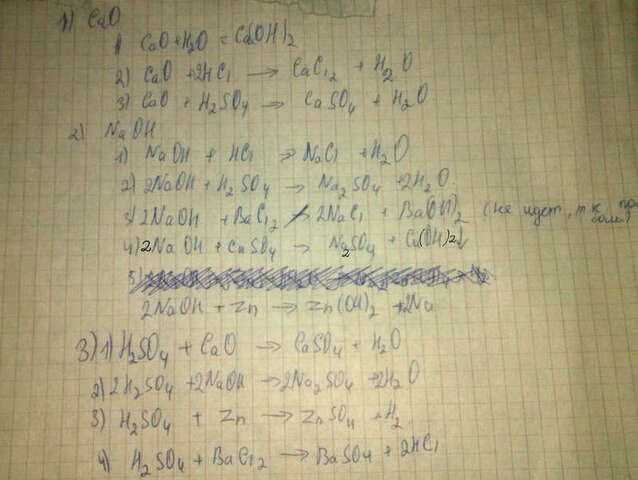 1) CaO
1) CaO + H2O = Ca(OH)2
2) CaO + 2HCl → CaCl2 + H2O
3) CaO + H2SO4 → CaSO4 + H2O
2) NaOH
1) NaOH + HCl → NaCl + H2O
2) 2NaOH + H2SO4 → Na2SO4 + 2H2O
3) 2NaOH + BaCl2 ↛ 2NaCl + Ba(OH)2 (не идет, т к
4) 2NaOH + CuSO4 → Na2SO4 + Cu(OH)2↓
5)
2NaOH + Zn → Zn(OH)2 + 2Na
3) 1) H2SO4 + CaO → CaSO4 + H2O
2) 2H2SO4 + 2NaOH → 2Na2SO4 + 2H2O
3) H2SO4 + Zn → ZnSO4 + H2
4) H2SO4 + BaCl2 → BaSO4 + 2HCl